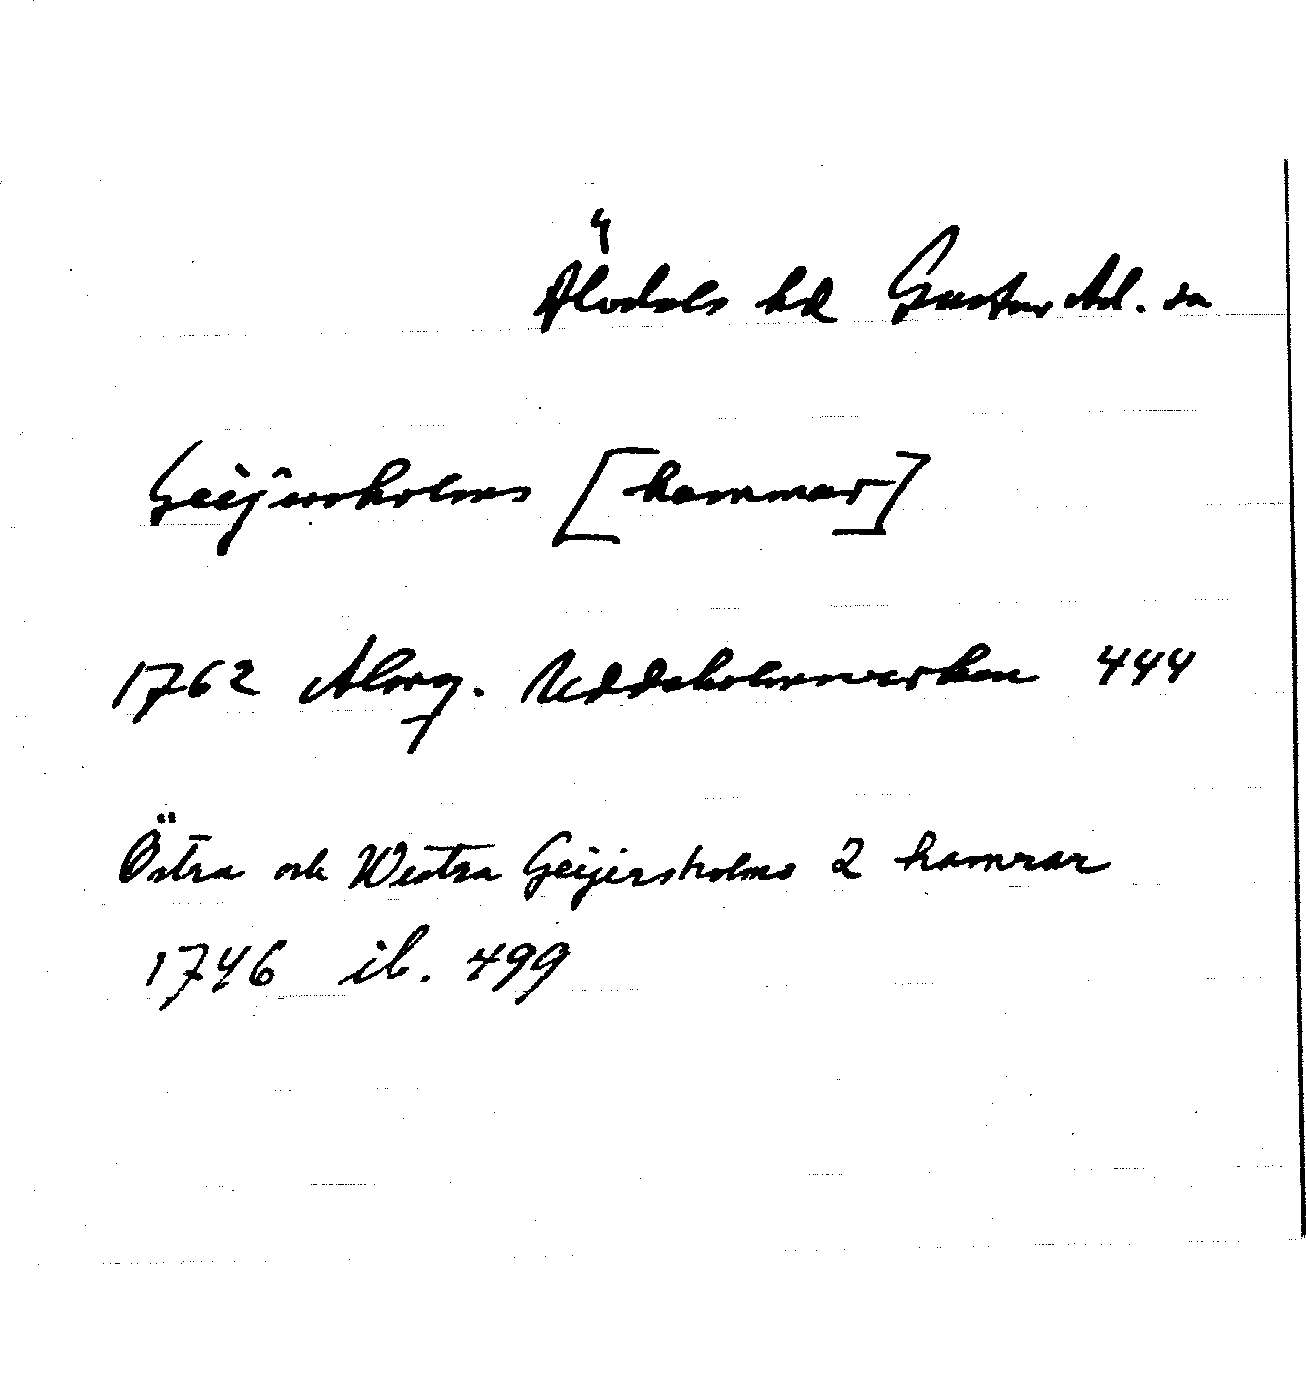 Älvdals hd Gustav Ad. sn
Geijersholms [hammar]
1762 Almq. Uddeholmsverken 444
Östra och Westra Geijersholms 2 hamrar
1746 ib. 499